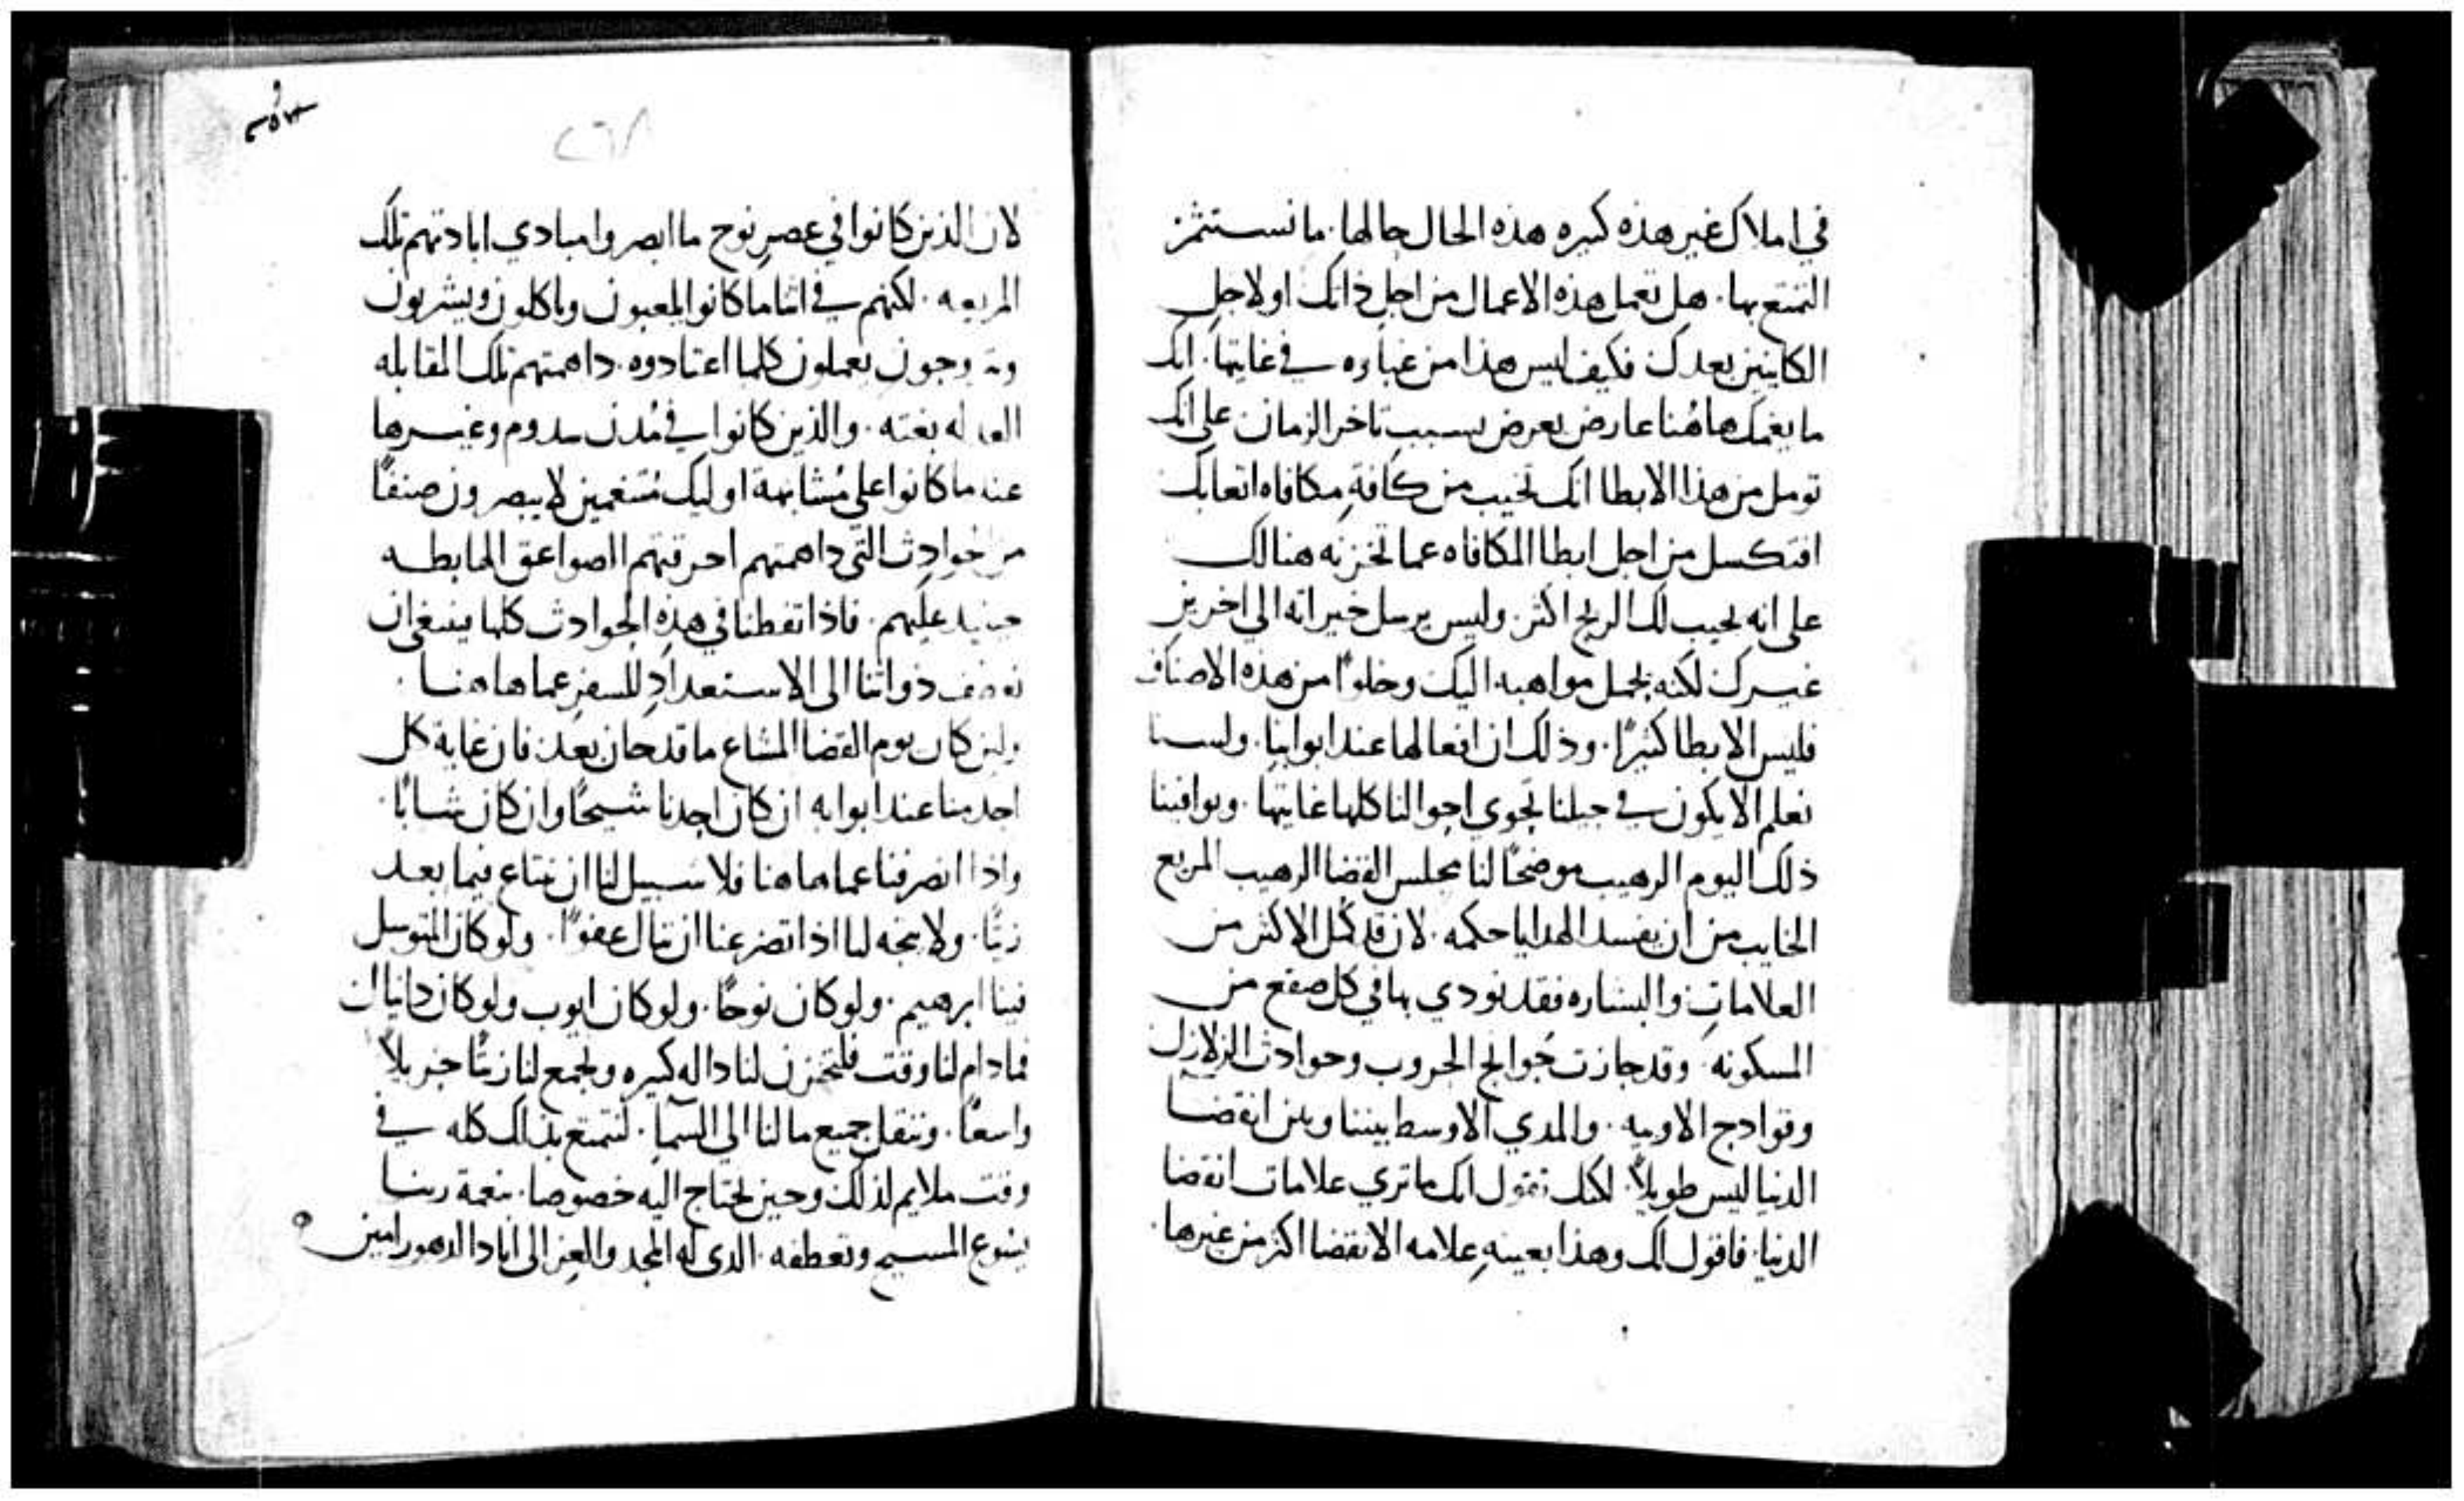 في املاك غير هذه كبيره هذه الحال حالها. ما تستثمر
التمتع بها. هل تعمل هذه الاعمال من اجل ذاتك او لاجل
الكاينين بعدك فكيف ليس هذا من غباوه في غايتها. انك
ما يغمك هاهُنا عارض يعرض بسبب تاخر الزمان على انك
تومل من هذا الابطا انك تخيب من كافةِ مكافاه اتعابك
افتكسل من اجل ابطا المكافاه عما تخزنه هنالك
على انه يجيب لك الربح اكثر. وليس يرسل خيراته الي اخرين
غيرك لكنه يحمل مواهبه اليك وخلوًا من هذه الاصناف
فليس الابطا كثيرًا. وذلك ان افعالها عند ابوابنا. ولسنا
نعلم الا يكون في جيلنا تحوي احوالنا كلها غايتها. ويوافينا
ذلك اليوم الرهيب موضحًا لنا مجلس القضا الرهيب المريع
الخايب من ان يفسد الهدايا حكمه. لان قد كمُل الاكثر من
العلاماتِ والبشاره فقد نودي بها في كل صقع من
المسكونه. وقد جازت جَوايح الحروب وحوادث الزلازل
وقوادح الاوبيه. والمدي الاوسط بيننا وبين انقضا
الدنيا ليس طويلاً. لكنك تقول انك ما تري علامات انقضا
الدنيا. فاقول لك وهذا بعينهِ علامه الانقضا اكثر من غيرها.
٢٦٨
لان الذين كانوا في عصرِ نوح ما ابصروا مبادي ابادتهم تلك
المريعه. لكنهم في اثنا ما كانوا يلعبون وياكلون ويشربون
ويتزوجون يعملون كلما اعتادوه. داهمتهم تلك المقابله
العادله بغته. والذين كانوا في مُدن سدوم وغيرها
عندما كانوا على مُشابهة اوليك مُتنعمين لا يبصرون صنفًا
من الحوادث التي داهمتهم احرقتهم الصواعق الهابطه
حينيد عليهم. فاذا تفطنا في هذهِ الحوادث كلها ينبغي ان
ننهض ذواتنا الى الاستعدادِ للسفرِ عما هاهنا.
ولين كان يوم القضا المشاع ما قد حان بعد. فان غاية كل
احد منا عند ابوابه ان كان احدنا شيخًا وان كان شابًا.
واذا انصرفنا عما هاهنا فلا سبيل لنا ان نبتاع فيما بعد
زيتًا. ولا يتجه لنا اذا تضرعنا ان ننال عفوًا. ولو كان المتوسل
فينا ابرهيم. ولو كان نوحًا. ولو كان ايوب ولو كان دانيال
فما دام لنا وقت فلنخزن لنا داله كبيره ونجمع لنا زيتًا جزيلاً
واسعًا. وننقل جميع ما لنا الي السما. لنتمتع بذلك كله في
وقت ملايم لذلك وحين نحتاج اليه خصوصا. بنعمة ربنا
يسوع المسيح وتعطفه. الذي له المجد والعز الى اباد الدهور امين